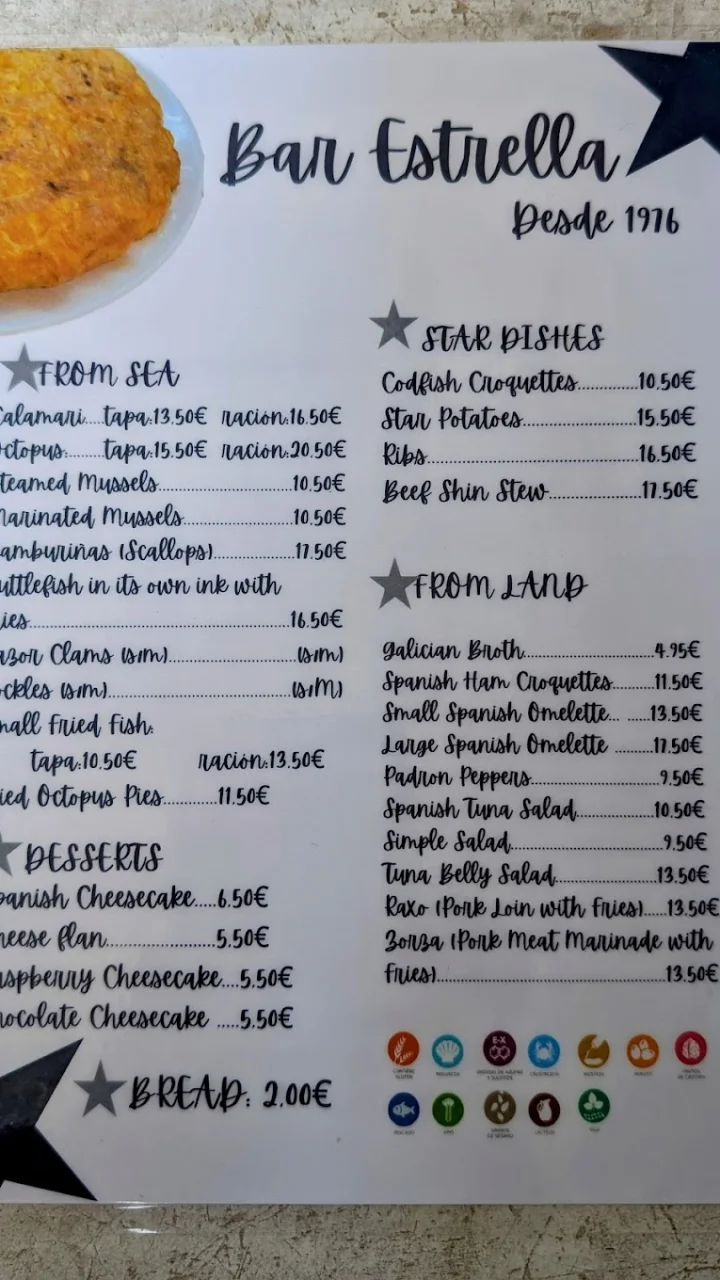 Bar Estrella
Desde 1976
FROM SEA
Calamari....tapa:13.50€ ración:16.50€
Octopus:........tapa:15.50€ ración:20.50€
Steamed Mussels...............................10.50€
Marinated Mussels.........................10.50€
Zamburiñas (Scallops)...................17.50€
Cuttlefish in its own ink with
fries............................................................16.50€
Razor Clams (s/m)..............................(s/m)
Cockles (s/m)..........................................(s/M)
Small Fried Fish:
tapa:10.50€ ración:13.50€
Fried Octopus Pies............11.50€
DESSERTS
Spanish Cheesecake.....6.50€
Cheese flan.........................5.50€
Raspberry Cheesecake....5.50€
Chocolate Cheesecake .....5.50€
BREAD: 2.00€
STAR DISHES
Codfish Croquettes..............10.50€
Star Potatoes...........................15.50€
Ribs..................................................16.50€
Beef Shin Stew......................17.50€
FROM LAND
Galician Broth...............................4.95€
Spanish Ham Croquettes.........11.50€
Small Spanish Omelette... ......13.50€
Large Spanish Omelette .........17.50€
Padron Peppers..............................9.50€
Spanish Tuna Salad..................10.50€
Simple Salad....................................9.50€
Tuna Belly Salad........................13.50€
Raxo (Pork Loin with Fries).....13.50€
Zorza (Pork Meat Marinade with
Fries).....................................................13.50€
E-X